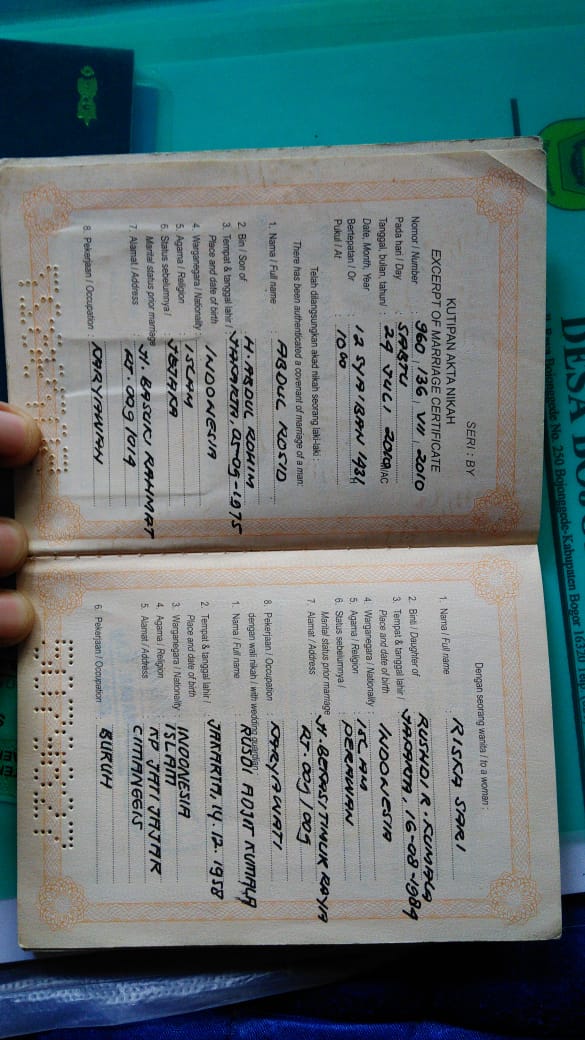 SERI : BY
KUTIPAN AKTA NIKAH
EXCERPT OF MARRIAGE CERTIFICATE
Nomor / Number : 960 / 136 / VII / 2010
Pada hari / Day : SABTU
Tanggal, bulan, tahun / : 24 JULI 2010 M/AC
Date, Month, Year
Bertepatan / Or : 12 SYA'BAN 1431
Pukul / At : 10.00
Telah dilangsungkan akad nikah seorang laki-laki :
There has been authenticated a covenant of marriage of a man:
1. Nama / Full name : ABDUL ROSID
2. Bin / Son of : H. ABDUL ROHIM
3. Tempat & tanggal lahir / : JAKARTA, -09-1975
Place and date of birth
4. Warganegara / Nationality : INDONESIA
5. Agama / Religion : ISLAM
6. Status sebelumnya / : JEJAKA
Marital status prior marriage
7. Alamat / Address : Jl. BASUKI RAHMAT
RT. 009 / 014
8. Pekerjaan / Occupation : KARYAWAN
Dengan seorang wanita / to a woman :
1. Nama / Full name : RISKA SARI
2. Binti / Daughter of : RUSHDI R. KUMALA
3. Tempat & tanggal lahir / : JAKARTA, 16-08-1984
Place and date of birth
4. Warganegara / Nationality : INDONESIA
5. Agama / Religion : ISLAM
6. Status sebelumnya / : PERAWAN
Marital status prior marriage
7. Alamat / Address : Jl. BEKASI TIMUR RAYA
RT. 009 / 009
8. Pekerjaan / Occupation : KARYAWATI
dengan wali nikah / with wedding guardian :
1. Nama / Full name : RUSDI KUMALA
2. Tempat & tanggal lahir / : JAKARTA, 14. 12. 1958
Place and date of birth
3. Warganegara / Nationality : INDONESIA
4. Agama / Religion : ISLAM
5. Alamat / Address : KP JATI JAJAR
CIMANGGIS
6. Pekerjaan / Occupation : BURUH
DESA
Jl. Raya Bojonggede No. 250 Bojonggede-Kabupaten Bogor 16320